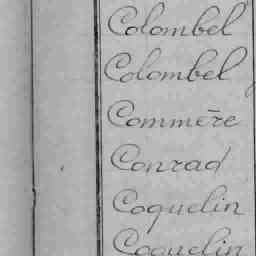 Colombel
Colombel
Commère
Conrad
Coquelin
Coquelin